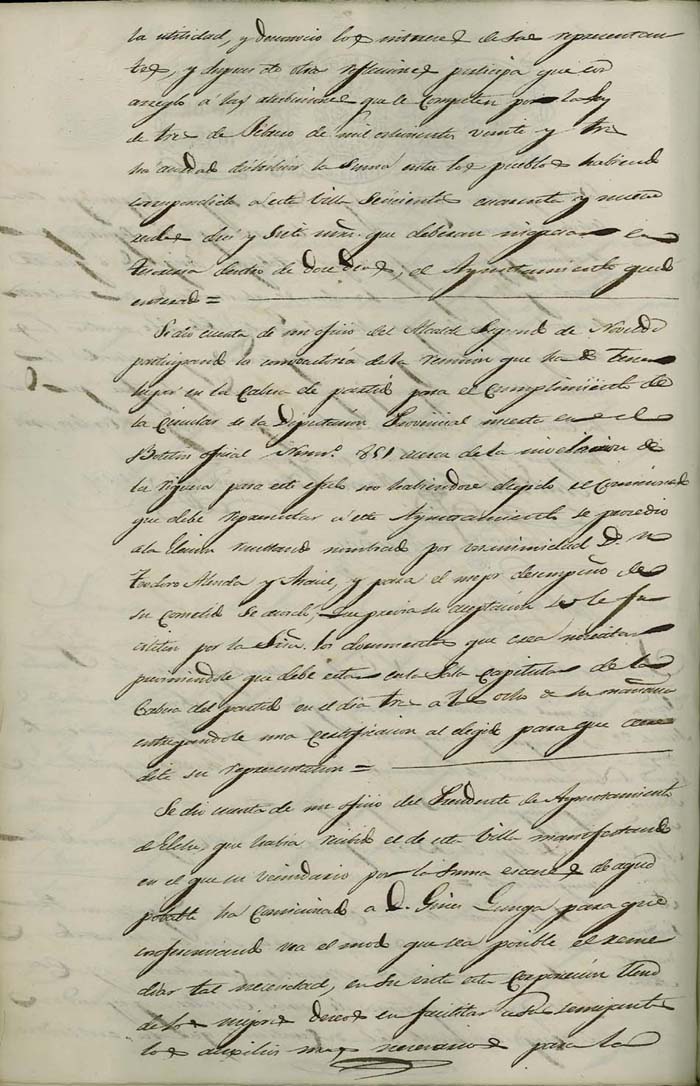 la utilidad, y denuncio los intereses de sus representan
tes, y despues de otras reflecsiones participa que con
arreglo á las atribuciones que le competen por la Ley
de tres de Febrero de mil ochocientos veinte y tres
ha acordado distribuir la Suma entre los pueblos habiendo
correspondido á esta Villa Seiscientos cuarenta y nueve
reales dies y siete mrs. que deberan ingresar en
tesoreria dentro de doce dias, el Ayuntamiento quedó
enterado =
Se dió cuenta de un oficio del Alcalde Segundo de Novelda
participando la convocatoria de la reunion que ha de tener
lugar en la Cabeza de partido para el Cumplimiento de
la Circular de la Diputación Provincial inserta en el
Boletin oficial Num.º 851 acerca de la nivelacion de
la riqueza para este efecto no habiendose elegido el Comisionado
que debe representar á este Ayuntamiento se procedio
a la Eleccion resultando nombrado por unanimidad D.
Teodoro Alenda y , y para el mejor desempeño de
su cometido Se acordó, Que previa su aceptación se le fa
ciliten por la Sría. los documentos que crea necesitar
previniendole que debe estar en la Sala Capitular de la
Cabeza del partido en el dia tres a las ocho de su mañana
entregandole una Certificacion al elegido para que acre
dite su representacion =
Se dio cuenta de un oficio del Presidente de Ayuntamiento
de Elche, que habia recibido el de esta Villa manifestando
en el que su vecindario por la suma escases de agua
potable ha Comisionado a D. Gines para que
conferenciando vea el modo que sea posible el reme
diar tal necesidad, en su vista esta Corporación lleno
de los mejores deseos en facilitar a sus semejantes
los ausilios mas necesarios para la